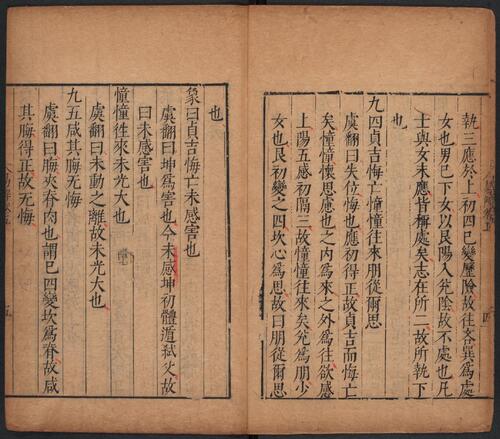 執三應於上初四已變歷險故往吝巽爲處
女也男已下女以艮陽入兌陰故不處也凡
士與女未應皆稱處矣志在所二故所執下
也
九四貞吉悔亡憧憧往來朋從爾思
虞翻曰失位悔也應初得正故貞吉而悔亡
矣憧憧懷思慮也之内爲來之外爲往欲感
上隔五感初隔三故憧憧往來矣兌爲朋少
女也艮初變之四坎心爲思故曰朋從爾思
也
彖曰貞吉悔亡未感害也
虞翻曰坤爲害也今未感坤初體遁弑父故
曰未感害也
憧憧往來未光大也
虞翻曰未動之離故未光大也
九五咸其脢无悔
虞翻曰脢夾脊肉也謂已四變坎爲脊故咸
其脢得正故无悔